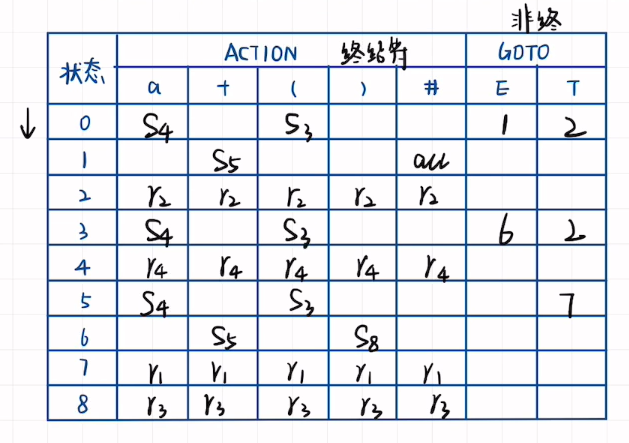 非终
状态 ACTION 终结符 GOTO
a + ( ) # E T
0 S4 S3 1 2
1 S5 acc
2 r2 r2 r2 r2 r2
3 S4 S3 6 2
4 r4 r4 r4 r4 r4
5 S4 S3 7
6 S5 S8
7 r1 r1 r1 r1 r1
8 r3 r3 r3 r3 r3